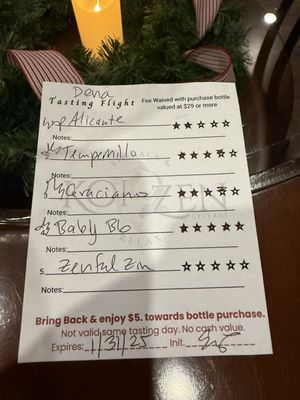 Dena
Tasting Flight Fee Waived with purchase bottle
valued at $29 or more
Alicante ★★★★★
Notes:
Tempernillo ★★★★★
Notes:
Graciano ★★★★★
Notes:
Baby Blb ★★★★★
RELAX
Notes:
5. Zenful Zin ☆☆☆☆☆
Notes:
Bring Back & enjoy $5. towards bottle purchase.
Not valid same tasting day. No cash value.
Expires: 1/31/25 Init.